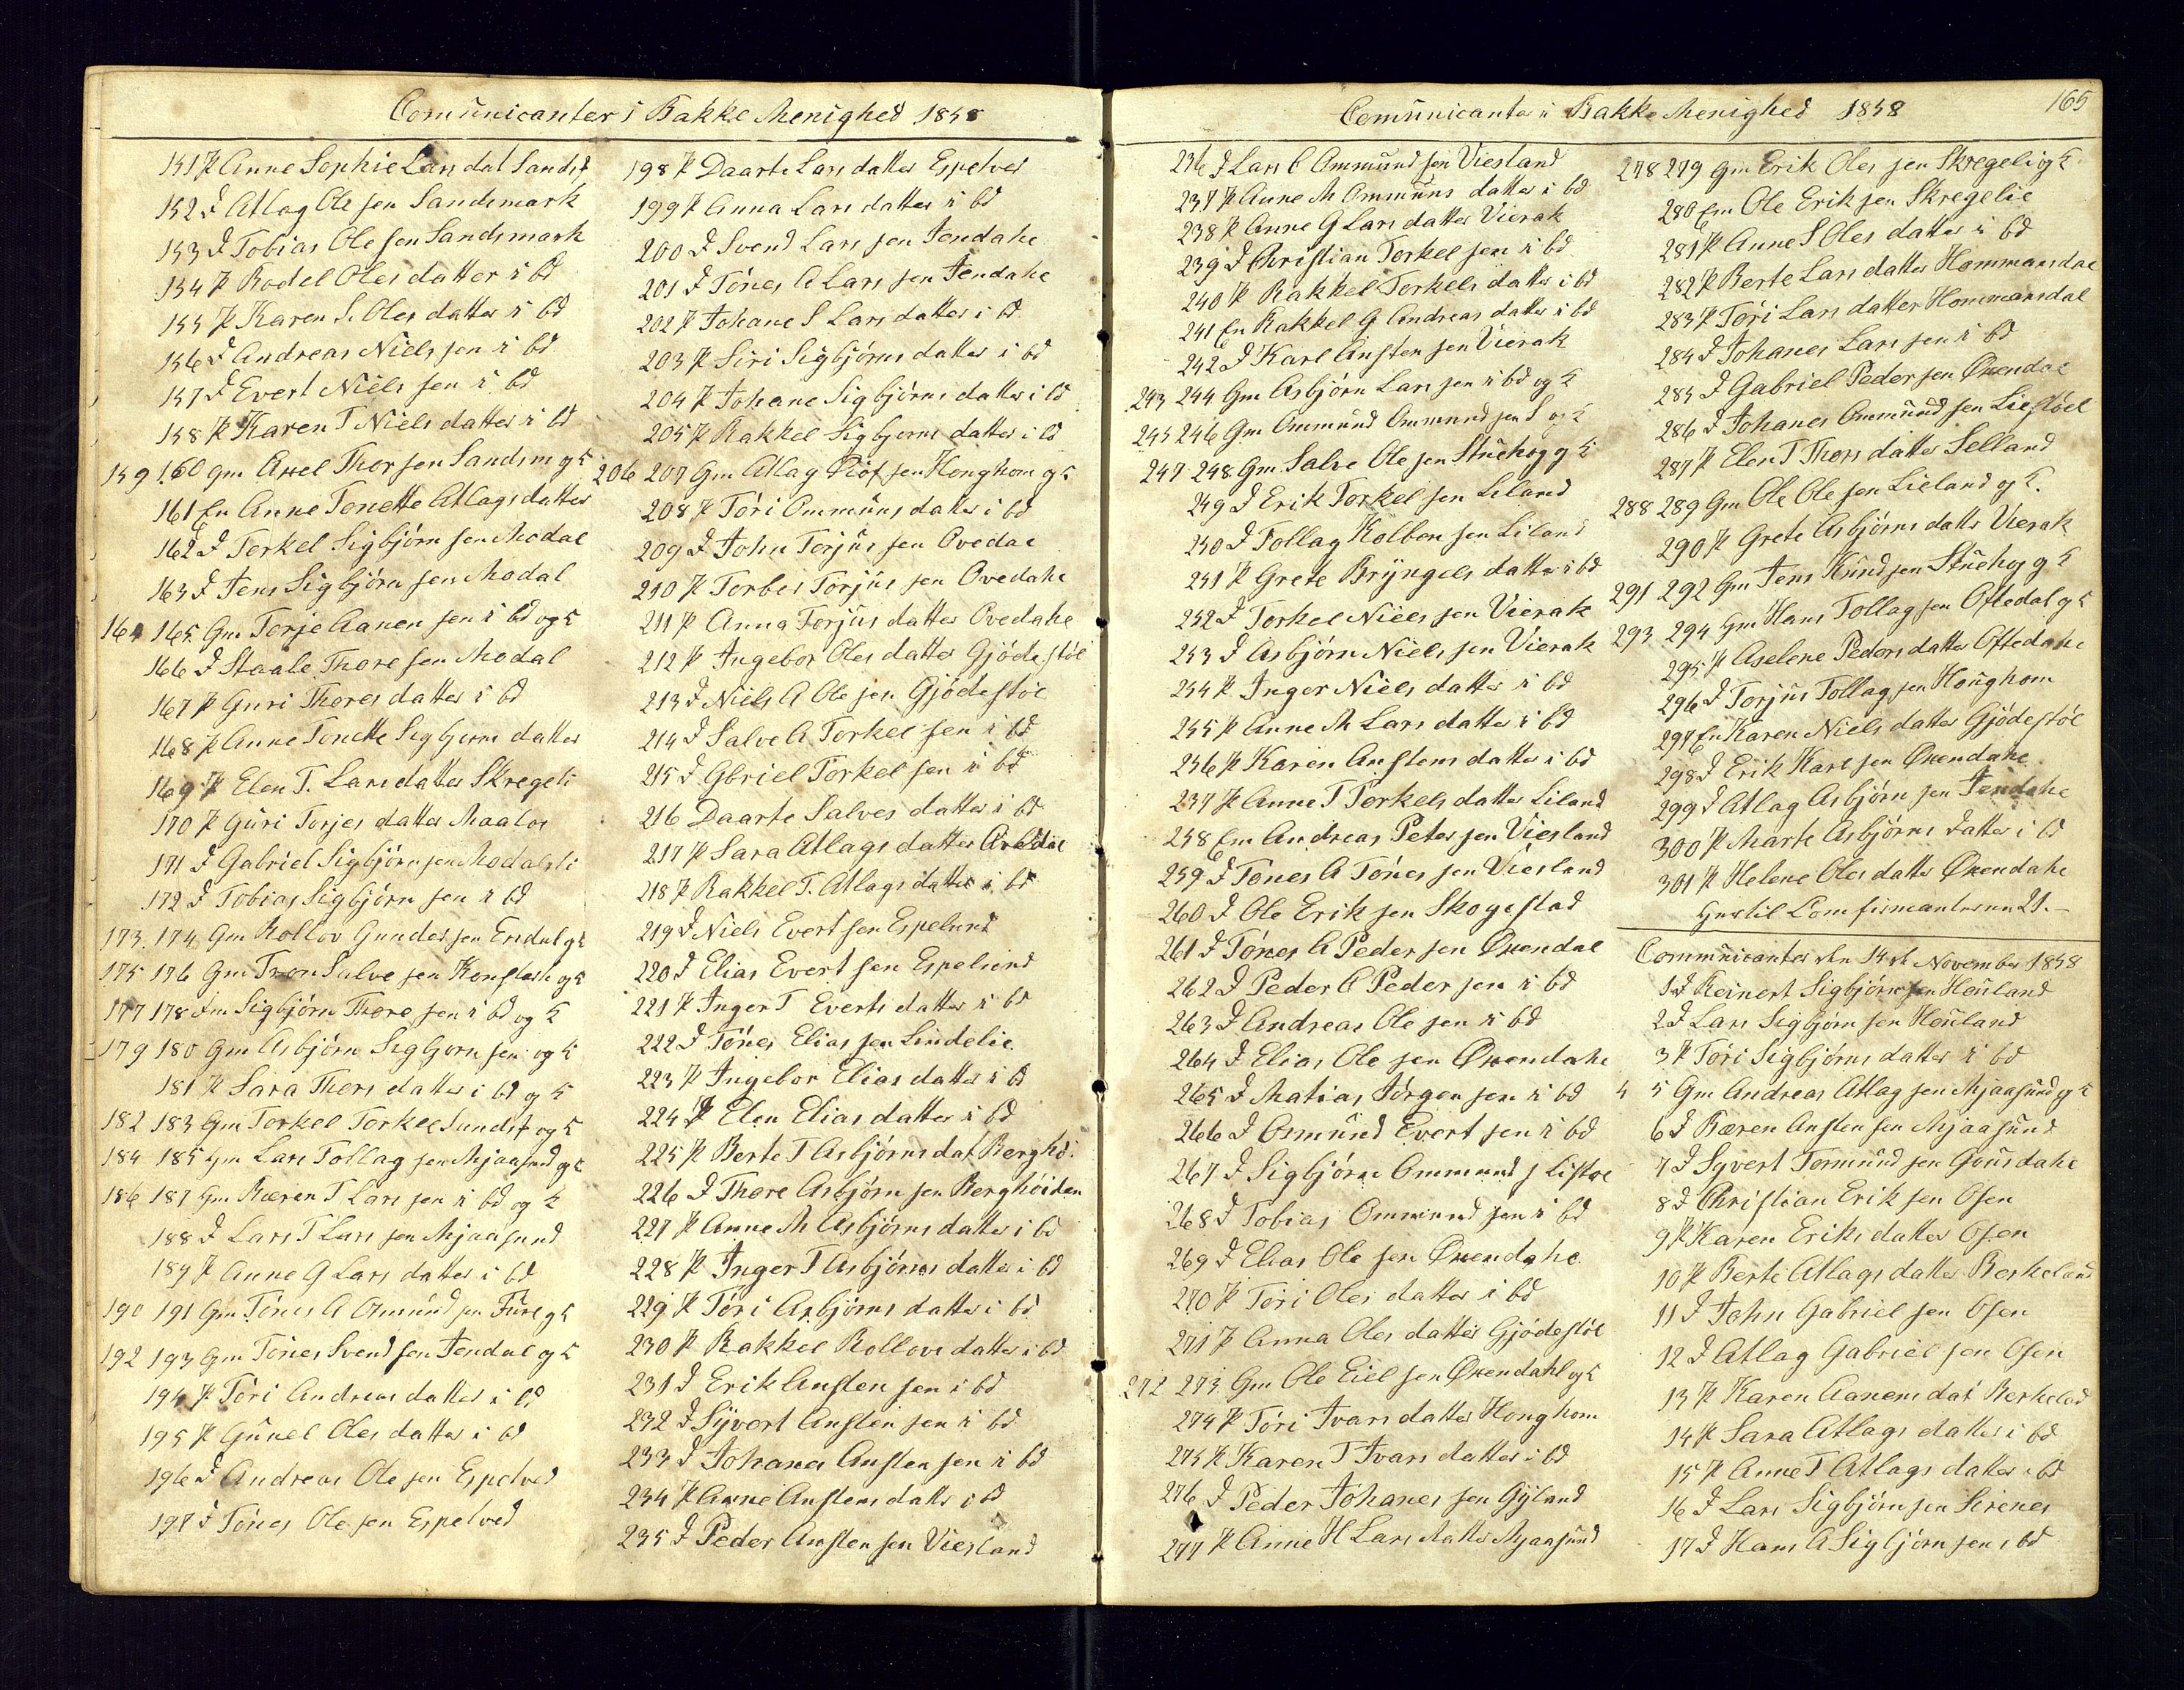 Comunicanter i Bakke Menighed 1858
151 P Anne Sophie Larsdat Sandsf
152 D Atlag Ole sen Sandsmark
153 D Tobias Ole sen Sandsmark
154 P Bodel Oles datter i bd
155 P Karen S. Oles datter i bd
156 D Andreas Niels sen i bd
157 D Evert Niels sen i bd
158 P Karen T Niels datter i bd
159 160 Gm Axel Thor sen Sandsm og K
161 En Anne Tonette Atlags datter
162 D Torkel Sigbjørn sen Modal
163 D Jens Sigbjørn sen Modal
164 165 Gm Torje Aanen sen i bd og K
166 D Staale Thore sen Modal
167 P Guri Thores datter i bd
168 P Anne Tonette Sigbjørns datter
169 P Elen T. Lars datter Skregeli
170 P Guri Torjes datter Maalos
171 D Gabriel Sigbjørn sen Modalsli
172 D Tobias Sigbjørn sen i bd
173 174 Gm Rollov Gunder sen Endal og K
175 176 Gm Tron Salve sen og K
177 178 Gm Sigbjørn Thore sen i bd og K
179 180 Gm Asbjørn Sigbjørn sen og K
181 P Sara Thors datter i bd og K
182 183 Gm Torkel Torkel Sundsf og K
184 185 Gm Lars Tollag sen Mjaasund og K
186 187 Gm Bæren T Lars sen i bd og K
188 D Lars T Lars sen Mjaasund
189 P Anne G Lars datter i bd
190 191 Gm Tønes A Omund sen Fure og K
192 193 Gm Tønes Svend sen Jendal og K
194 P Tøri Andreas datter i bd
195 P Gunel Oles datter i bd
196 D Andreas Ole sen Espetved
197 D Tønes Ole sen Espetved
198 P Daarte Lars datter Espetved
199 P Anna Lars datter i bd
200 D Svend Lars sen Jendahe
201 D Tønes A Lars sen Jendahe
202 P Johane S Lars datter i bd
203 P Siri Sigbjørns datter i bd
204 P Johane Sigbjørns datter i bd
205 P Rakkel Sigbjorns datter i bd
206 207 Gm Atlag sen Honghom og K
208 P Tøri Ommuns datter i bd
209 D John Torjus sen Ovedal
210 P Torbes Torjus sen Ovedahe
211 P Anna Torjus datter Ovedahe
212 P Ingebor Oles datter Gjødestøl
213 D Niels A Ole sen Gjødestøl
214 D Salve A Torkel sen i bd
215 D Gbriel Torkel sen i bd
216 Daarte Salves datter i bd
217 P Sara Atlags datter Ovedal
218 P Rakkel T. Atlags datter i bd
219 D Niels Evert sen Espelund
220 D Elias Evert sen Espelund
221 P Inger T Everts datter i bd
222 D Tønes Elias sen Lindelie
223 P Ingebor Elias datter i bd
224 P Elen Elias datter i bd
225 P Berte T Asbjørns dat Berghd.
226 D Thore Asbjørn sen Berghøiden
227 P Anne M Asbjørns datter i bd
228 P Inger T Asbjørns datter i bd
229 P Tøri Asbjørns datter i bd
230 P Rakkel Rollovs datter i bd
231 D Erik Ansten sen i bd
232 D Syvert Ansten sen i bd
233 D Johanes Ansten sen i bd
234 P Anne Anstens datte i bd
235 D Peder Ansten sen Viesland
Comunicanter i Bakke Menighed 1858
165
236 D Lars C Ommund sen Viesland
237 P Anne M Ommuns datter i bd
238 P Anne G Lars datter Vierak
239 D Christian Torkel sen i bd
240 P Rakkel Torkels datter i bd
241 En Rakkel G Andreas datter i bd
242 D Karl Ansten sen Vierak
243 244 Gm Asbjørn Lars sen i bd og K
245 246 Gm Ommund Ommund sen S og K
247 248 Gm Salve Ole sen Stuehog og K
249 D Erik Torkel sen Liland
250 D Tollag Kolben sen Liland
251 P Grete Bryngels datter i bd
252 D Torkel Niels sen Vierak
253 D Asbjørn Niels sen Vierak
254 P Inger Niels datter i bd
255 P Anne M Lars datter i bd
256 P Karen Anstens datter i bd
257 P Anne T Torkels datter Liland
258 Em Andreas Peter sen Viesland
259 D Tønes A Tønes sen Viesland
260 D Ole Erik sen Skogestad
261 D Tønes A Peder sen Øxendal
262 D Peder C Peder sen i bd
263 D Andreas Ole sen i bd
264 D Elias Ole sen Øxendahe
265 D Matias Jørgen sen i bd
266 D Osmund Evert sen i bd
267 D Sigbjørn Ommund s Listøl
268 D Tobias Ommund sen i bd
269 D Elias Ole sen Øxendahe
270 P Tøri Oles datter i bd
271 P Anna Oles datter Gjødestøl
272 273 Gm Ole Eiel sen Øxendahl og K
274 P Tøri Ivars datter Honghom
275 P Karen T Ivars datter i bd
276 D Peder Johanes sen Gyland
277 P Anne H Lars datter Mjaasund
278 279 Gm Erik Oles sen Skregeli og K.
280 Em Ole Erik sen Skregelie
281 P Anne S Oles datter i bd
282 P Berte Lars datter Hommansdal
283 P Tøri Lars datter Hommansdal
284 D Johanes Lars sen i bd
285 D Gabriel Peder sen Øxendal
286 D Johanes Ommund sen Liestøel
287 P Elen T Thors datter Selland
288 289 Gm Ole Ole sen Lieland og K.
290 P Grete Asbjørns datte Vierak
291 292 Gm Jens Knud sen Stuehog og K
293 294 Gm Hans Tollag sen Oftedal og K
295 P Aselene Peders datter Oftedahe
296 D Torjus Tollag sen Houghom
297 En Karen Niels datter Gjødestøl
298 D Erik Karl sen Øxendahe
299 D Atlag Asbjørn sen Jendahe
300 P Marte Asbjørns datter i bd
301 P Helene Oles datter Øxendahe
Comfirmanterne 21.
Communicanter den 14de November 1858
1 D Reinert Sigbjørn sen Houland
2 D Lars Sigbjørn sen Houland
3 P Tøri Sigbjørns datter i bd
4 5 Gm Andreas Atlag sen Mjaasund og K
6 D Bæren Ansten sen Mjaasund
7 D Syvert Tormund sen Gousdahe
8 D Christian Erik sen Osen
9 P Karen Eriks datter Osen
10 P Berte Atlags datter Berkeland
11 D John Gabriel sen Osen
12 D Atlag Gabriel sen Osen
13 P Karen Aanens dat Berkelad
14 P Sara Atlags datter i bd
15 P Anne T Atlags datter i bd
16 D Lars Sigbjørn sen Sirenes
17 D Hans A Sigbjørn sen i bd